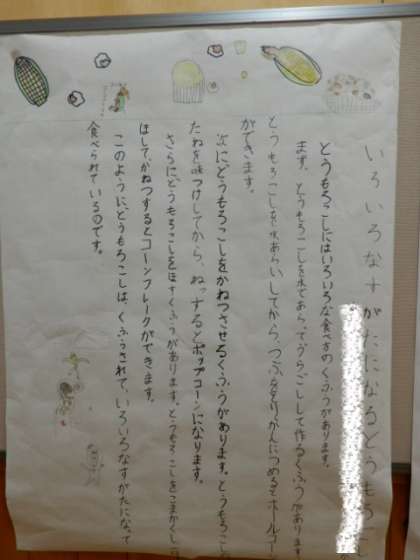 いろいろなすがたになるどうもろこ
とうもろこしにはいろいろな食べ方のくふうがあります。
まず、とうもろこしを水であらって
作るくふうがあります。
とうもろこしを水あらいしてから、つぶを
かんにつめるとホールコーン
ができます。
次にどうもろこしをかねつさせるくふうがあります。とうもろこし
たねを味つけしてから、ねっするとポップコーンになります。
さらに、どうもろこしをほすくふうがあります。とうもろこしをこまかくし、
ほして、かねつするとコーンフレークができます。
このように、どうもろこしは、くふうされて、いろいろなすがたになって
食べられているのです。